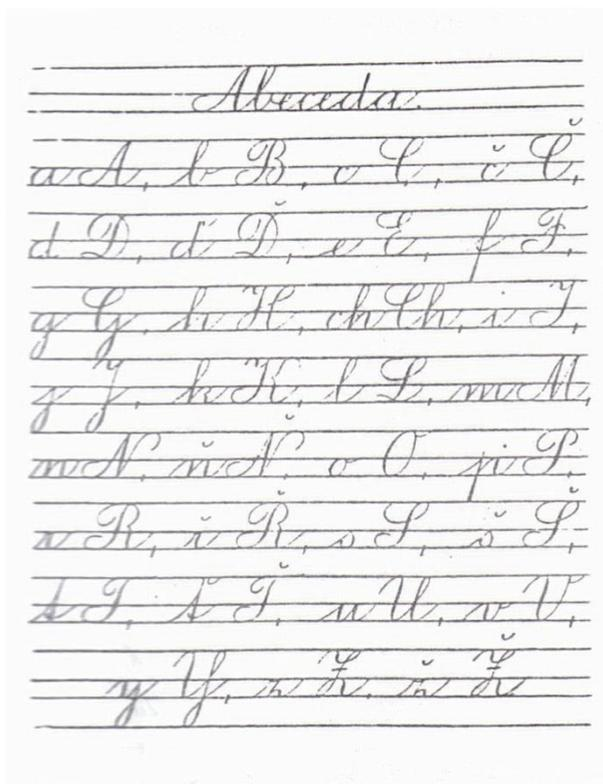 Abeceda.
a A, b B, c C, č Č,
d D, ď Ď, e E, f F,
g G, h H, ch Ch, i I,
j J, k K, l L, m M,
n N, ň Ň, o O, p P,
r R, ř Ř, s S, š Š,
t T, ť Ť, u U, v V,
y Y, z Z, ž Ž